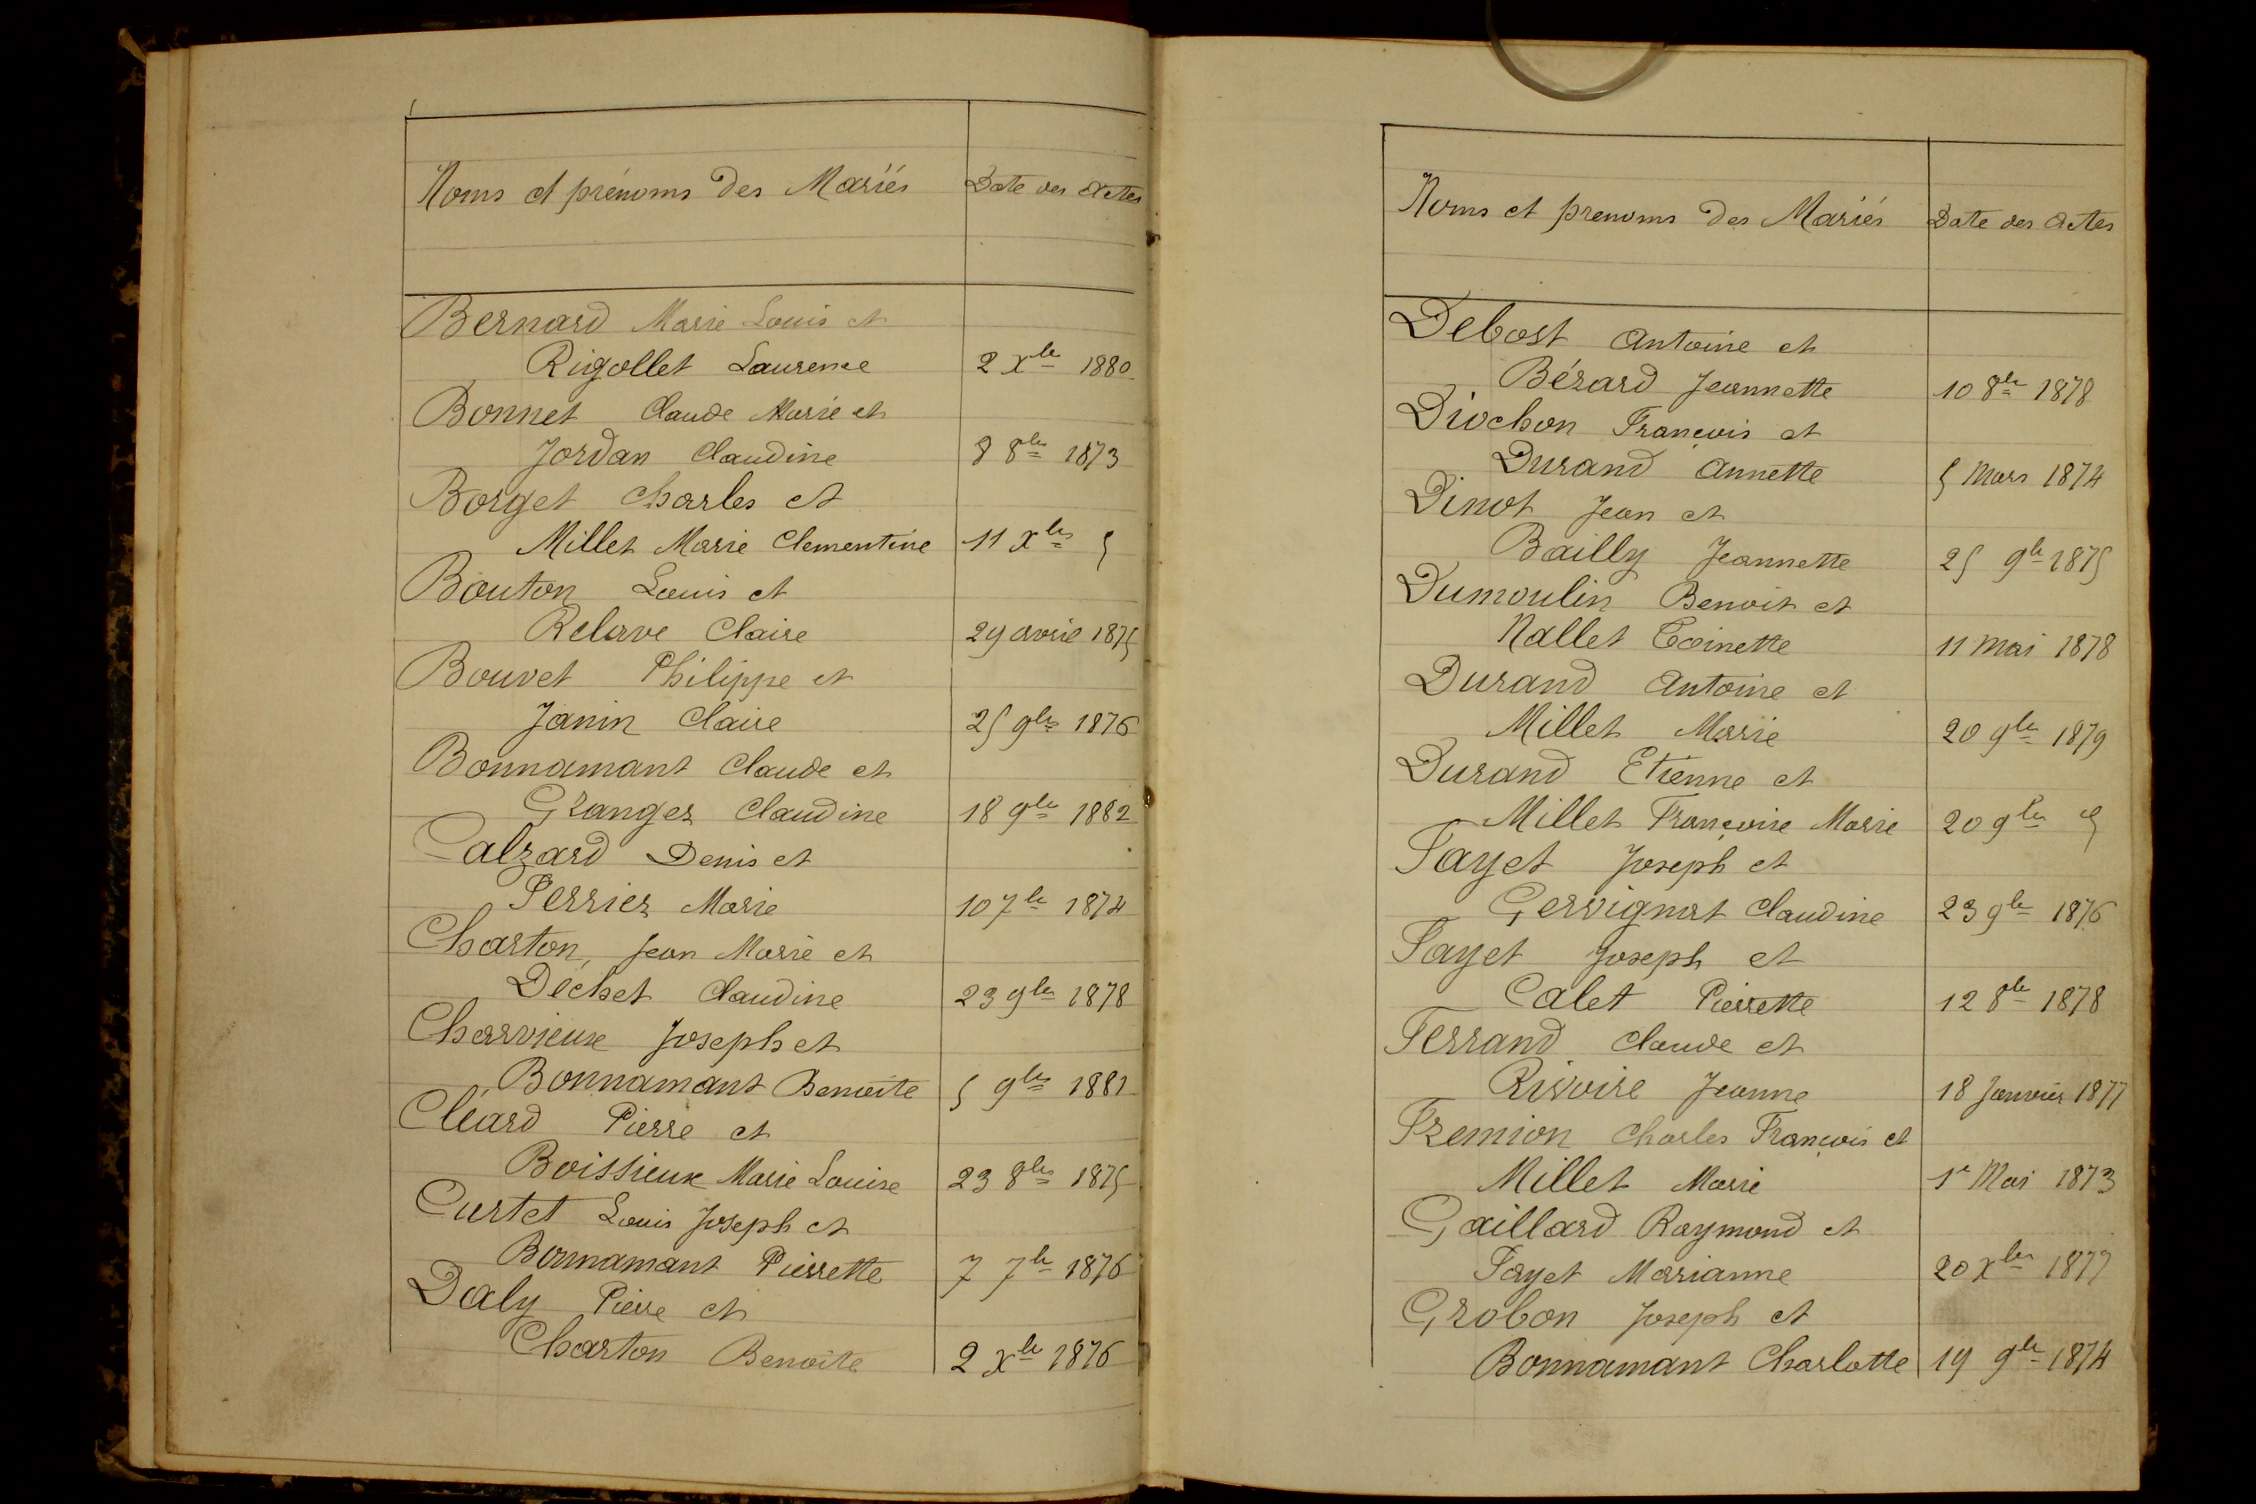 Noms et prénoms des Mariés Date des Actes
Bernard Marie Louis et
Rigollet Laurence 2 Xbre 1880
Bonnet Claude Marie et
Jordan Claudine 8 8bre 1873
Borget Charles et
Millet Marie Clementine 11 Xbre
Bouton Louis et
Relave Claire 29 avril 1875
Bouvet Philippe et
Janin Claire 25 9bre 1876
Bonnamant Claude et
Granger Claudine 18 9bre 1882
Calzard Denis et
Perrier Marie 10 7bre 1874
Charton, Jean Marie et
Déchet Claudine 23 9bre 1878
Charvieux Joseph et
Bonnamant Benoite 5 9bre 1881
Cléard Pierre et
Boissieux Marie Louise 23 8bre 1875
Curtet Louis Joseph et
Bonnamant Pierrette 7 7bre 1876
Daly Pierre et
Charton Benoite 2 Xbre 1876
Noms et prenoms des Mariés Date des Actes
Debost Antoine et
Bérard Jeannette 10 8bre 1878
Diochon François et
Durand Annette 5 Mars 1874
Dinot Jean et
Bailly Jeannette 25 9bre 1875
Dumoulin Benoit et
Nallet Toinette 11 Mai 1878
Durand Antoine et
Millet Marie 20 9bre 1879
Durand Etienne et
Millet Françoise Marie 20 9bre
Fayet Joseph et
Gervignat Claudine 23 9bre 1876
Fayet Joseph et
Calet Pierrette 12 8bre 1878
Ferrand Claude et
Rivoire Jeanne 18 Janvier 1877
Fremion Charles François et
Millet Marie 1r Mai 1873
Gaillard Raymond et
Fayet Marianne 20 Xbre 1877
Grobon Joseph et
Bonnamant Charlotte 19 9bre 1874